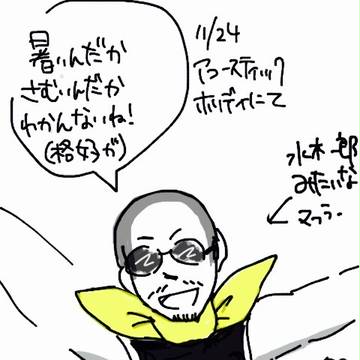 暑いんだか
さむいんだか
わかんないね!
(格好が)
11/24
アコースティック
ホリディにて
水木一郎
みたいな
マフラー